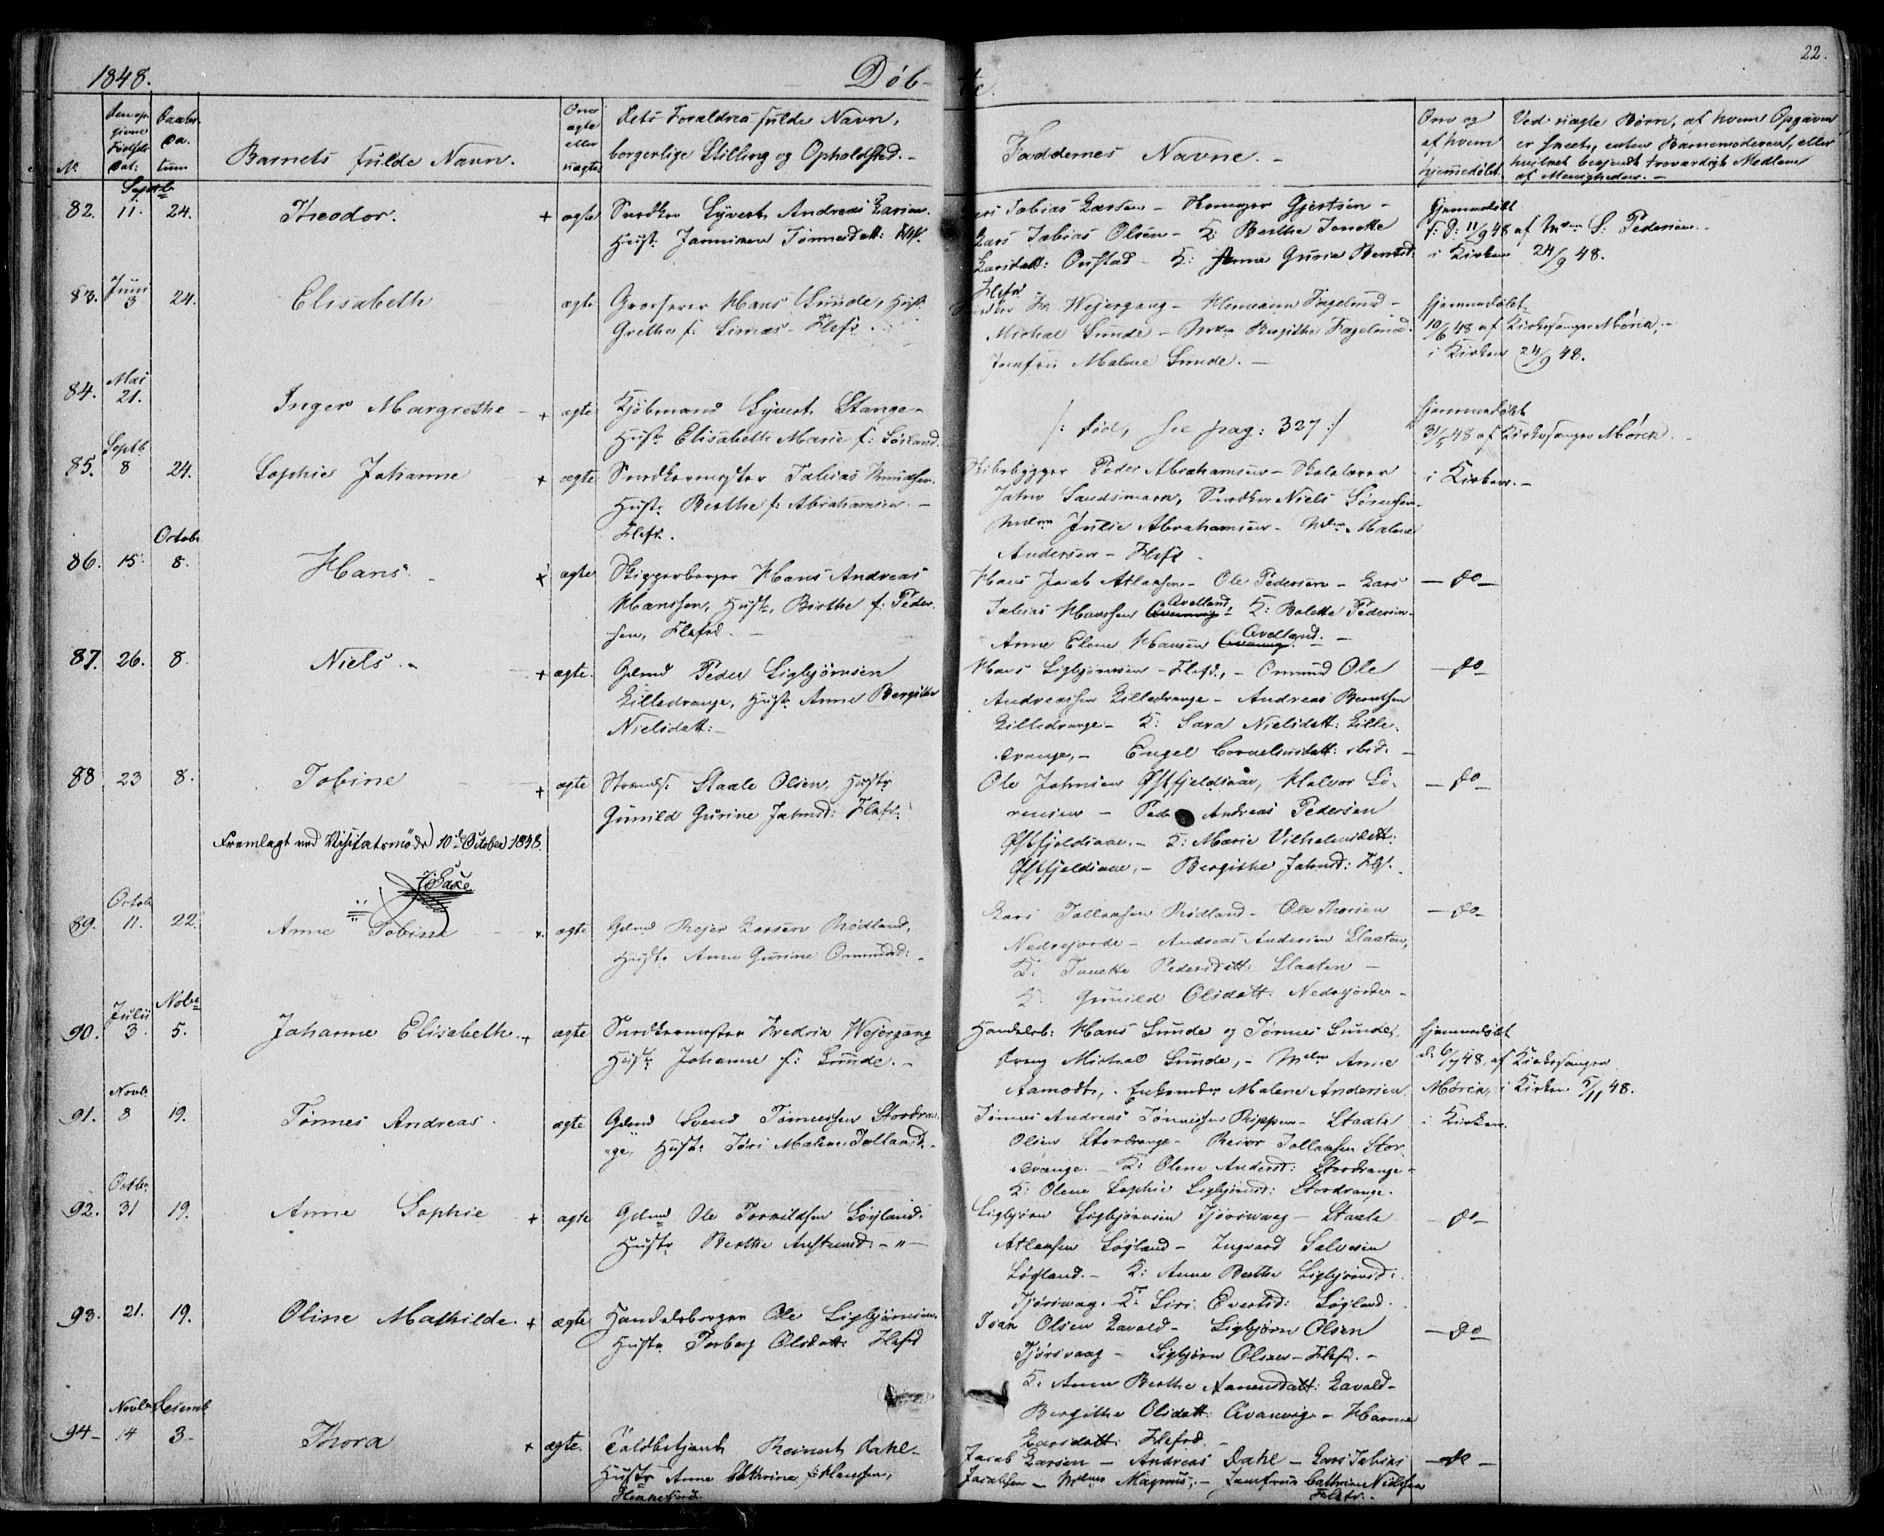 22.
1848. Døb-te.
No
Den opgivne Fødsels Dat:
Daabs Datum
Barnets fulde Navn.
Om ægte eller uægte
Dets Forældres fulde Navn,
borgerlige Stilling og Opholdsted. -
Faddernes Navne. -
Om og af hvem hjemmedøbt
Ved uægte Børn, af hvem Opgaven
er skeet, enten Barnemoderen, eller
hvilket betjendt troværdigt Medlem
af Menigheden. -
Septb
82. 11. 24. Theodor. + ægte Snedker Syvert Andreas Larsen.
Hust: Tønnesdatt: Flkf.
Lars Tobias Larsen - Gjertsen -
Lars Tobias Olsen - K: Berthe Tonette
Larsdatt: - K: Anne Gurie Berntsd:
Flekfd -
Hjemmedøbt
d: 11/9 48 af Mdm S: Pedersen. -
i Kirken 24/9 48.
Juni
83. 3 24. Elisabeth ægte Grosserer Hans Sunde, Hust:
Grethe f: Simes - Flekfd.
Fr. Wejergang - Hermann Fagelund -
Michal Sunde - Mdm Bergithe Fagelund.
Jomfru Malene Sunde. -
hjemmedøbt
10/6 48 af Kirkesanger Mørck, -
i Kirken 24/9 48.
Mai
84. 21. Inger Margrethe - + ægte Kjøbmand Syvert Stange -
Hust: Elisabeth Marie f: Sørland.
/: død, see pag: 327 :/
hjemmedøbt
31/5 48 af Kirkesanger Mørck. -
Septb
85. 8 24. Sophie Johanne + ægte Snedkermester Tobias Knudsen.
Hust: Berthe f: Abrahamsen. -
Flekfd.
Skibsbygger Peder Abrahamsen - Skolelærer
John Sandsmark, Snedker Niels Sørensen
Mdm Julie Abrahamsen - Mdm Malene
Andersen - Flekfd
i Kirken. -
Octobr
86. 15. 8. Hans. - + ægte Skipperborger Hans Andreas
Hanssen, Hust. Birthe f: Peder-
sen, Flekfd. -
Hans Jacob Atlaksen - Ole Pedersen - Lars
Tobias Hanssen Avelland - K: Bolette Pedersen -
Anne Elene Hansen Avelland. -
- do -
87. 26. 8. Niels. - + ægte. Gdmd Peder Sigbjørnsen
Lilledrange, Hust: Anne Bergithe
Nielsdatt: -
Hans Sigbjørnsen - Flekfd. - Omund Ole
Andreassen Lilledrange - Andreas Berntsen
Lilledrange - K: Sara Nielsdatt: Lille-
drange, - Engel Corneliusdatt: ibid: -
- do -
88 23 8. Tobine + ægte Strands: Staale Olsen, Hust:
Gunild Gurine Johnsd: Flekfd:
Ole Johnsen Østfjeldsaae, Halvor Sø-
rensen - Peder Andreas Pedersen
Østfjeldsaae. - K: Marie Vilhelmsdatt:
Østfjeldsaae, - Bergithe Johnsd: Flkf.
- do -
Fremlagt ved Visitatsmøde 10de October 1848.
Octob
89. 11. 22. Anne Tobine + ægte Gdmd Rejer Larsen Rødland,
Hust: Anne Gurine Omundsd: -
Lars Tollaksen Rødland - Ole Thorsen
Nedrejorde - Andreas Andersen Slaaten,
K: Tonette Pedersdatt: Slaaten -
K: Gunild Olsdatt: Nedrejorde -
- do -
Julii Novbr
90. 3. 5. Johanne Elisabeth. + ægte Snedkermester Fredrik Wejergang
Hust: Johanne f: Sunde. -
Handelsb: Hans Sunde og Tønnes Sunde,
dreng Michael Sunde, - Mdm Anne
Aamodt, - Enkemdm Malene Andersen
hjemmedøbt
d: 6/7 48. af Kirkesanger
Mørck, i Kirken 5/11 48.
Novb.
91. 8 19. Tønnes Andreas. ægte Gdmd Svend Tønnessen Stordran-
ge, Hust: Tøri Malene Tollaksd. -
Tønnes Andreas Tønnessen Rippen - Staale
Olsen Stordrange - Reier Tollaksen Stor-
drange. - K: Olene Andersd: Stordrange -
K: Olene Sophie Sigbjørnsd: Stordrange.
i Kirken.
Octbr.
92. 31 19. Anne Sophie + ægte Gdmd Ole Torkildsen Løgland.
Hust: Berthe Aslksd. - " -
Sigbjørn Sigbjørnsen Tjørsvaag - Staale
Atlaksen Løgland - Ingvard Salvesen
Løgland. - K: Anne Berthe Sigbjørnsd:
Tjørsvaag. K: Siri Evertsd: Løgland.
- do -
93. 21. 19. Oline Mathilde. + ægte Handelsborger Ole Sigbjørnsen.
Hust: Torborg Olsdatt: Flekfd
Ivar Olsen Lavold - Sigbjørn Olsen
Tjørsvaag - Sigbjørn Olsen - Flekfd. -
K: Anne Berthe Aanensdatt: Lavold -
Bergithe Olsdatt: Avanvig - Hanne
Larsdatt: Flekfd. -
- do -
Novbr Decemb
94 - 14 3 - Thora + ægte. Toldbetjent Reinert Dahl -
Hust: Anne Cathrine f: Hansen,
Flekkefjord
Jacob Larsen - Andreas Dahl - Lars Tobias
Jacobsen - Mdm Magnus, - Jomfrue Cathrine Nielsen
Flekfd. -
- do -